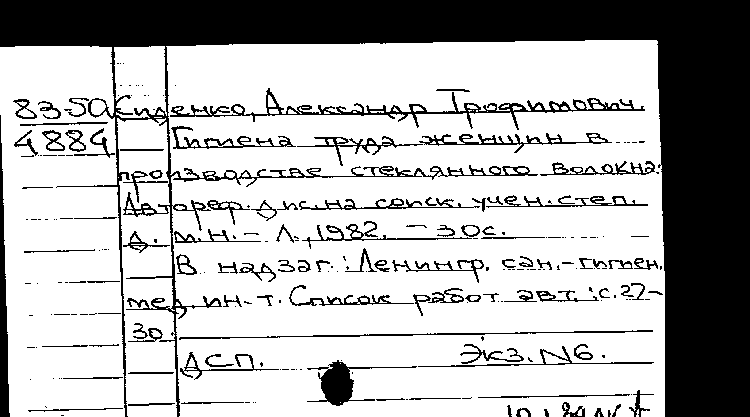 83-5А Сиденко, Александр Трофимович.
4884 Гигиена труда женщин в
производстве стеклянного волокна:
Автореф. дис. на соиск. учен. степ.
д. м. н. - Л., 1982. - 30с.
В надзаг.: Ленингр. сан.-гигиен.
мед. ин-т. Список работ авт.: с. 27-
30.
ДСП. Экз. N6.